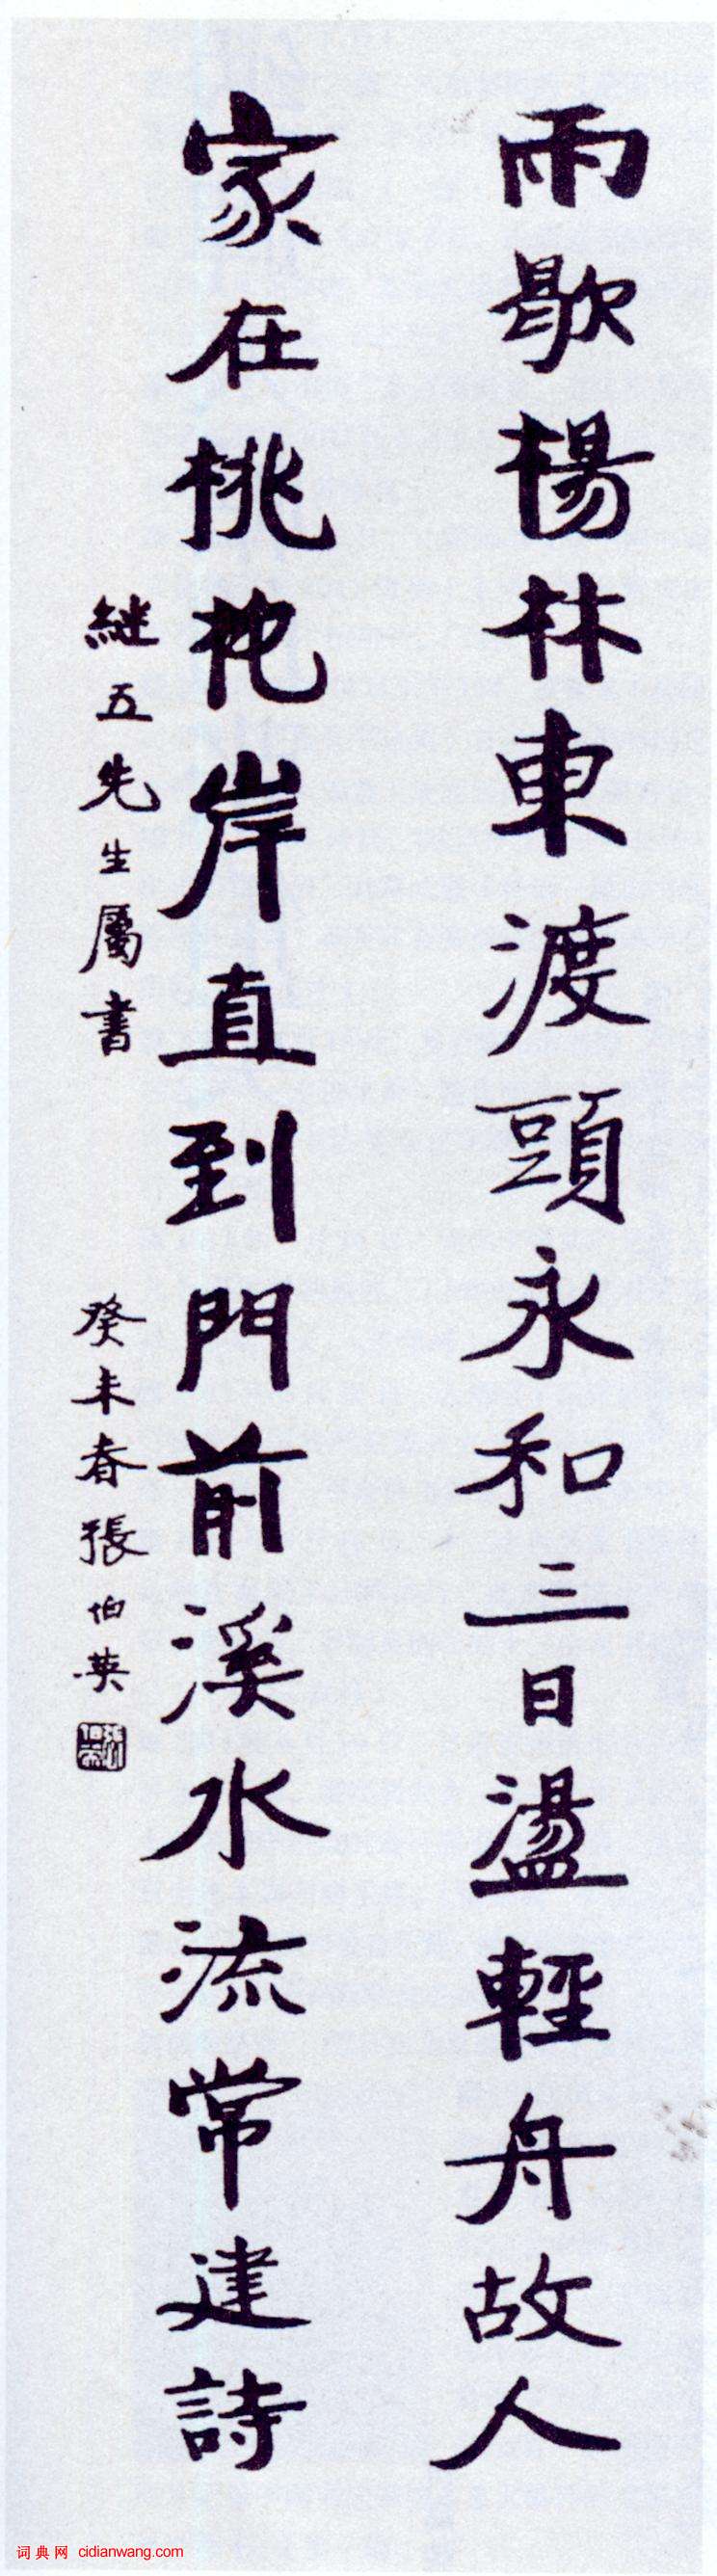 雨歇楊林東渡頭永和三日盪輕舟故人
家在桃花岸直到門前溪水流常建詩
継五先生属書
癸未春張伯英
词典网 cidianwang.com